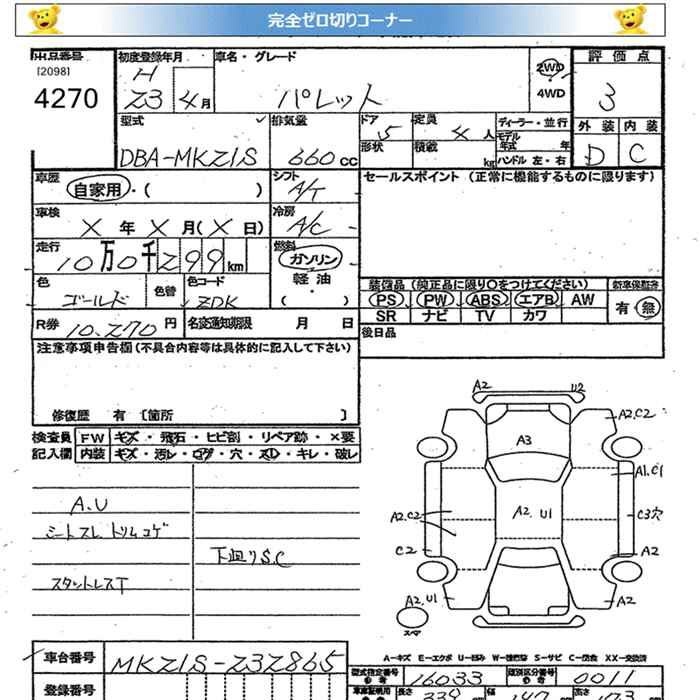 完全ゼロ切りコーナー
出品番号
[2098]
4270
初度登録年月
H
23 4月
車名・グレード
パレット
2WD
4WD
評価点
3
外装 内装
D C
型式
DBA-MKZ1S
排気量
660cc
ドア
5
定員
4人
形状
積載
kg
ディーラー・並行
モデル年式 年
ハンドル 左・右
車歴
自家用・( )
シフト
A/T
セールスポイント (正常に機能するものに限ります)
車検
X年X月(X日)
冷房
A/C
走行
10万0千299km
燃料
ガソリン
軽油
・( )
色
ゴールド
色替
色コード
ZDK
装備品(純正品に限り○をつけてください)
PS PW ABS エアB AW
SR ナビ TV カワ
新車保証書
有・無
R券 10,270円
名変通知期限 月 日
後日品
注意事項申告欄(不具合内容等は具体的に記入して下さい)
修復歴 有 〔箇所 〕
検査員記入欄
FW キズ・飛石・ヒビ割・リペア跡・×要
内装 キズ・汚レ・コゲ・穴・スレ・キレ・破レ
A.U
シートスレ トリムコゲ
下廻りS.C
スタットレスT
A2 U2
A2,C2
A3
A1,C1
A2,C2
A2,U1
C3穴
C2
A2
A2,U1
A2
スペア
車台番号
MKZ1S-232865
登録番号
A-キズ E-エクボ U-凹み W-補修跡 S-サビ C-腐食 XX-交換済
型式指定番号
16033
類別区分番号
0011
長さ
339
幅
147
高さ
173